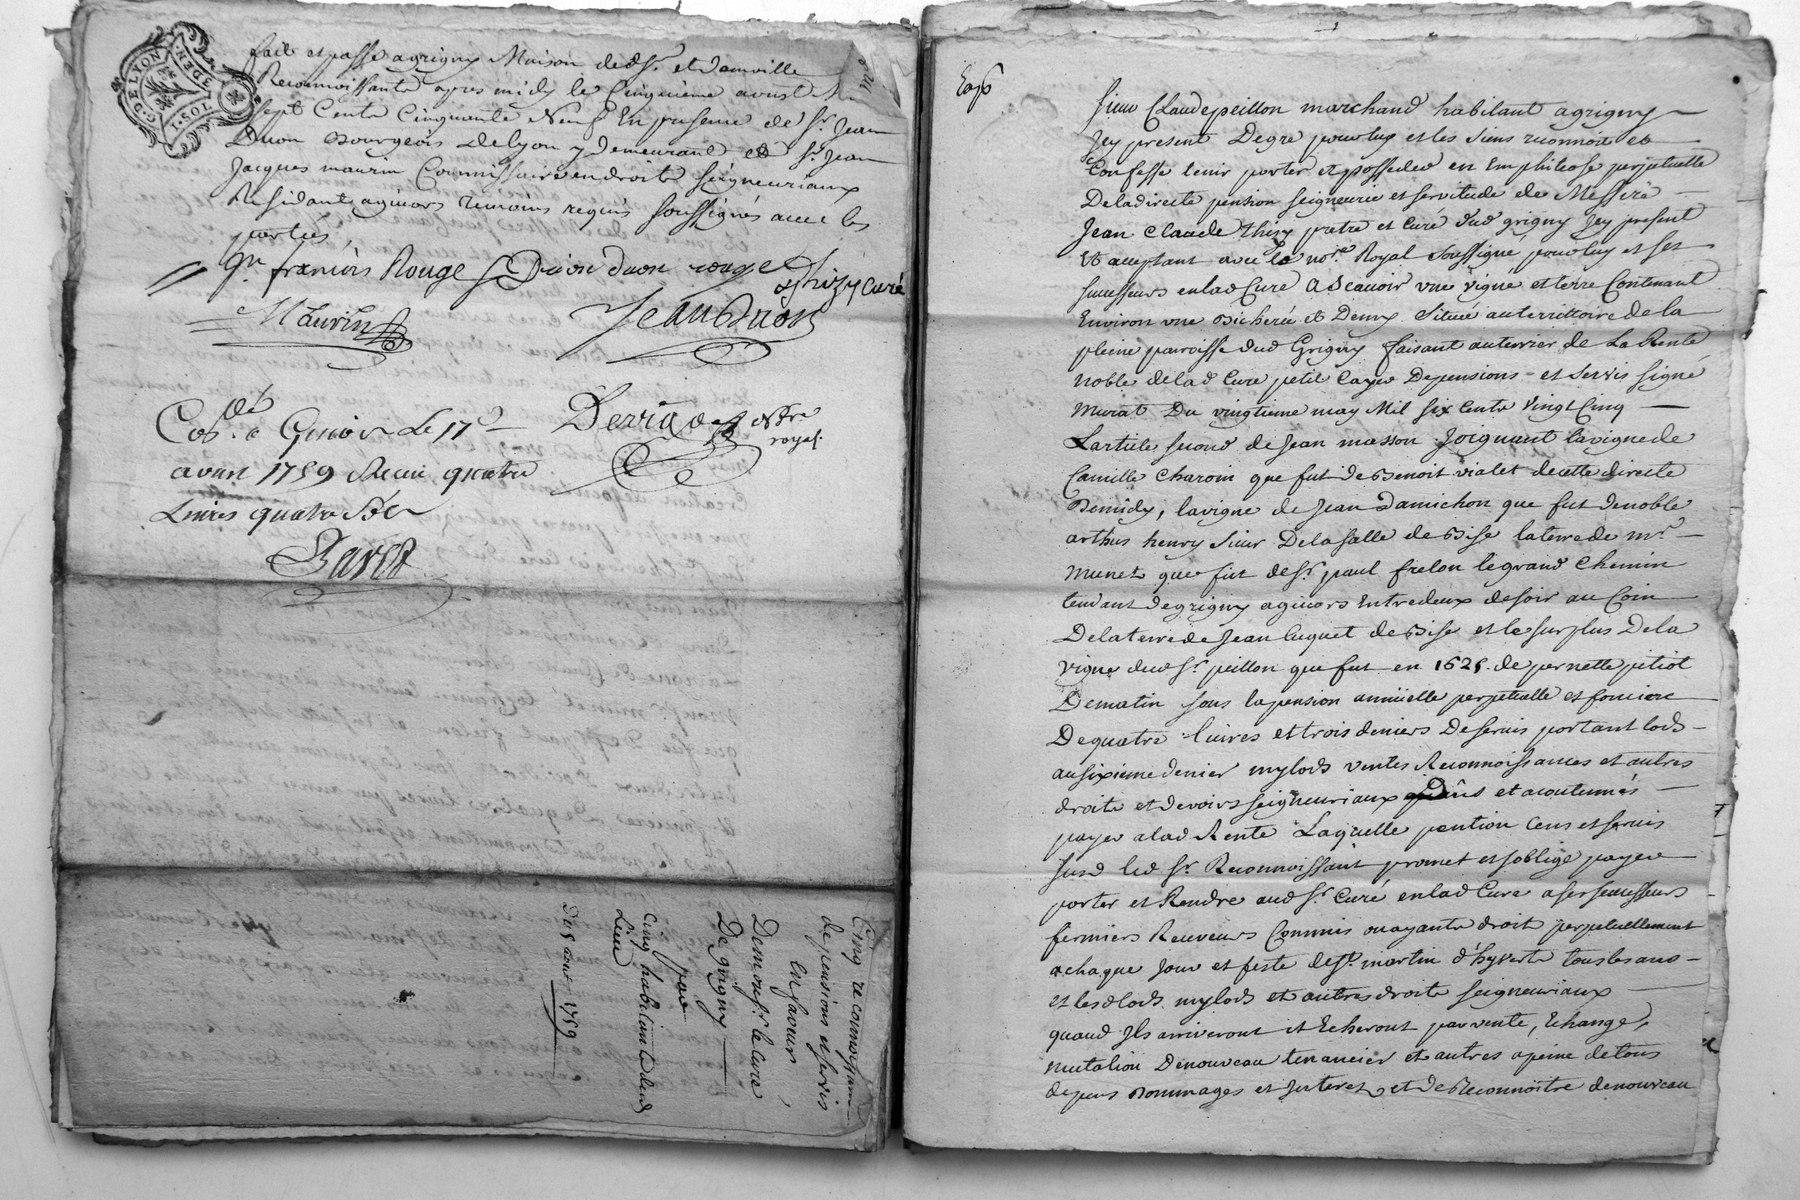 G. DE LYON 1. SOL 3. DEN
fait et passé a grigny Maison dud Sr. et demlle
Reconnoissante apres midy le Cinquieme aoust Mil
sept Cents Cinquante Neuf En presence de Sr. Jean
Duon Bourgeois de lyon y demeurant et Sr. Jean
Jacques maurin Commissaire en droits seigneuriaux
Residant a givors temoins requis soussignés avec les
parties
francois Rouge Duon rouge Thizy curé
Maurin Jean Duon
Cole. a Givors Le 17e
aoust 1759 Recu quatre
Livres quatre
royal.
Cinq reconnoissances
de pensions et servis
en faveur
De monsr. le curé
De grigny
par
cinq habitants dud
Lieu
Du 5 aout 1759
Sieur Claude peillon marchand habitant a grigny
Jcy present De gré pour luy et les siens reconnoit et
Confesse tenir porter et posseder en Emphiteose perpetuelle
De la directe pension seigneurie et servitude de Messire
Jean Claude Thizy pretre et Curé dud grigny Jcy present
et acceptant avec le nore. Royal soussigné pour luy et ses
successeurs en lad Cure a Scavoir une vigne et terre Contenant
Environ une Bicherée et Demy Située au territtoire de la
pleine paroisse dud Grigny faisant au terrier de La Rente
Noble de lad Cure petit Cayer De pensions et servis signé
Murat Du vingtieme may Mil six Cents Vingt Cinq
L'article second de Jean masson Joignant la vigne de
Camille Charoin que fut de Benoit vialet de cette directe
De midy, la vigne de Jean Damichon que fut de noble
arthus henry sieur De la salle de Bise la terre de mr.
Munet que fut de Sr. paul frelon le grand Chemin
tendant de grigny a givors Entre deux de soir au Coin
De la terre de Jean luquet de Bise et le surplus De la
vigne dud Sr. peillon que fut en 1625. de pernette pitiot
De matin sous la pension annuelle perpetuelle et fonciere
De quatre livres et trois deniers De servis portant lods
au sixieme denier mylods ventes Reconnoissances et autres
droits et devoirs seigneuriaux Dûs et acoutumés
payer a lad Rente Laquelle pention Cens et servis
susd led Sr. Reconnoissant promet et s'oblige payer
porter et Rendre aud Sr. Curé en lad Cure a ses successeurs
fermiers Receveurs Commis ou ayants droit perpetuellement
a chaque Jour et feste de St. martin d'hyverts tous les ans
et lesd lods mylods et autres droits seigneuriaux
quand Ils arriveront et Echeront par vente, Echange,
mutation De nouveau tenancier et autres a peine de tous
depens Dommages et Jnterets et de Reconnoitre de nouveau